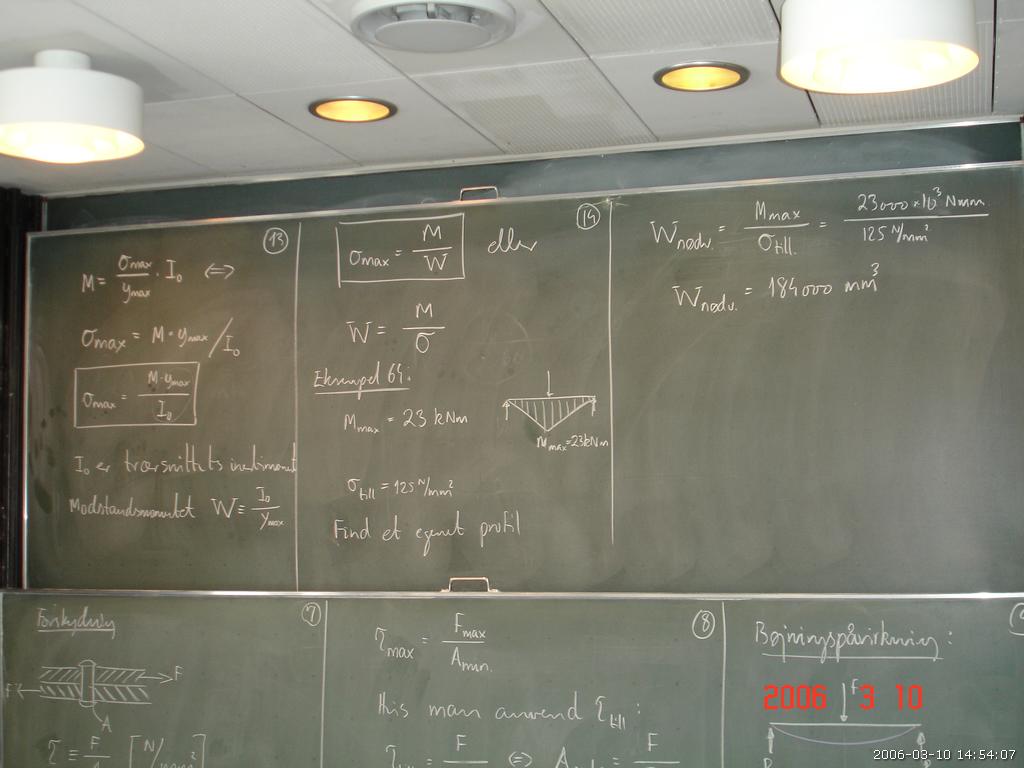 13
M = σmax / ymax · I0 <=>
σmax = M · ymax / I0
σmax = M·ymax / I0
I0 er tværsnittets inertimoment
Modstandsmomentet W = I0 / ymax
14
σmax = M / W eller
W = M / σ
Eksempel 64:
Mmax = 23 kNm
Mmax = 23kNm
σtill = 125 N/mm²
Find et egnet profil
Wnødv. = Mmax / σtill. = 23000 × 10³ Nmm / 125 N/mm²
Wnødv. = 184000 mm³
Forskydning
7
F
F
A
τ = F / A [N/mm²]
8
τmax = Fmax / Amin.
Hvis man anvend τtill:
F <=> A F
Bøjningspåvirkning:
F
2006 3 10
2006-03-10 14:54:07